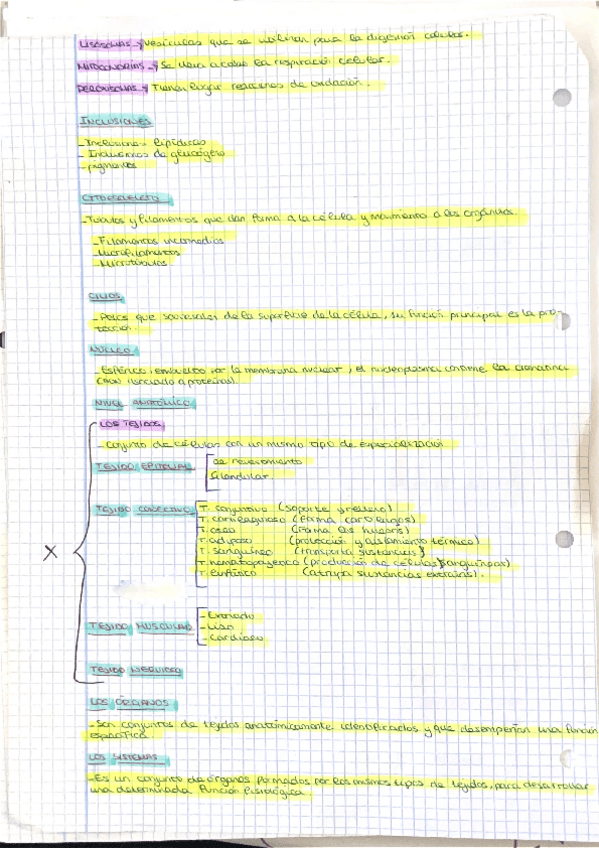 LISOSOMAS → Vesículas que se utilizan para la digestión celular.
MITOCONDRIAS → Se lleva a cabo la respiración celular.
PEROXISOMAS → Tienen lugar reacciones de oxidación.
INCLUSIONES
- Inclusiones lipídicas
- Inclusiones de glucógeno
- pigmentos
CITOESQUELETO
- Túbulos y filamentos que dan forma a la célula y movimiento a los orgánulos.
- Filamentos intermedios
- Microfilamentos
- Microtúbulos
CILIOS
- Pelos que sobresalen de la superficie de la célula, su función principal es la pro-
tección.
NÚCLEO
- Esférico, envuelto por la membrana nuclear, el nucleoplasma contiene la cromatina
(ADN asociado a proteínas).
NIVEL ANATÓMICO
LOS TEJIDOS
- Conjunto de células con un mismo tipo de especialización
TEJIDO EPITELIAL
de revestimiento
Glandular.
TEJIDO CONECTIVO
T. conjuntivo (soporte y relleno)
T. cartilaginoso (forma cartílagos)
T. óseo (forma los huesos)
T. adiposo (protección y aislamiento térmico)
T. sanguíneo (transporta sustancias)
T. hematopoyético (producción de células sanguíneas)
T. linfático (atrapa sustancias extrañas).
X
TEJIDO MUSCULAR
- Estriado
- Liso
- Cardíaco
TEJIDO NERVIOSO
LOS ÓRGANOS
- Son conjuntos de tejidos anatómicamente identificados y que desempeñan una función
específica.
LOS SISTEMAS
- Es un conjunto de órganos formados por los mismos tipos de tejidos, para desarrollar
una determinada función fisiológica.